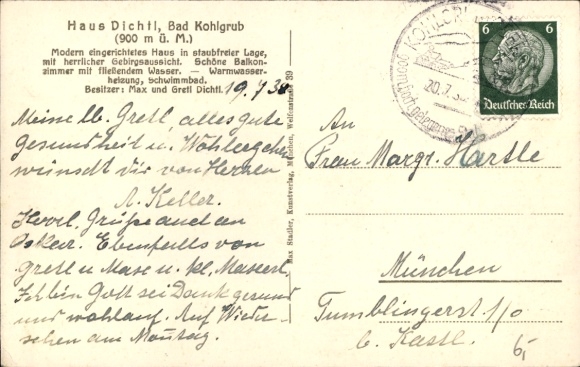 Haus Dichtl, Bad Kohlgrub
(900 m ü. M.)
Modern eingerichtetes Haus in staubfreier Lage,
mit herrlicher Gebirgsaussicht. Schöne Balkon-
zimmer mit fließendem Wasser. — Warmwasser-
heizung, Schwimmbad.
Besitzer: Max und Gretl Dichtl.
19.7.38
Meine lb. Gretl, alles gute
Gesundheit u. Wohlergehen
wünscht dir von Herzen
A. Keller.
Herzl. Grüße auch an
Oskar. Ebenfalls von
Gretl u Maxe u. kl. Maxerl.
Ich bin Gott sei Dank gesund
und wohlauf. Auf Wieder-
sehen am Montag.
Max Stadler, Kunstverlag, München, Welfenstrasse 39
KOHLGRUB
20.7.3
900m hoch gelegenes
6 6
Deutsches Reich
An
Frau Margr. Härtle
München
Tumblingerst 1/0
b. Kastl.
6,-